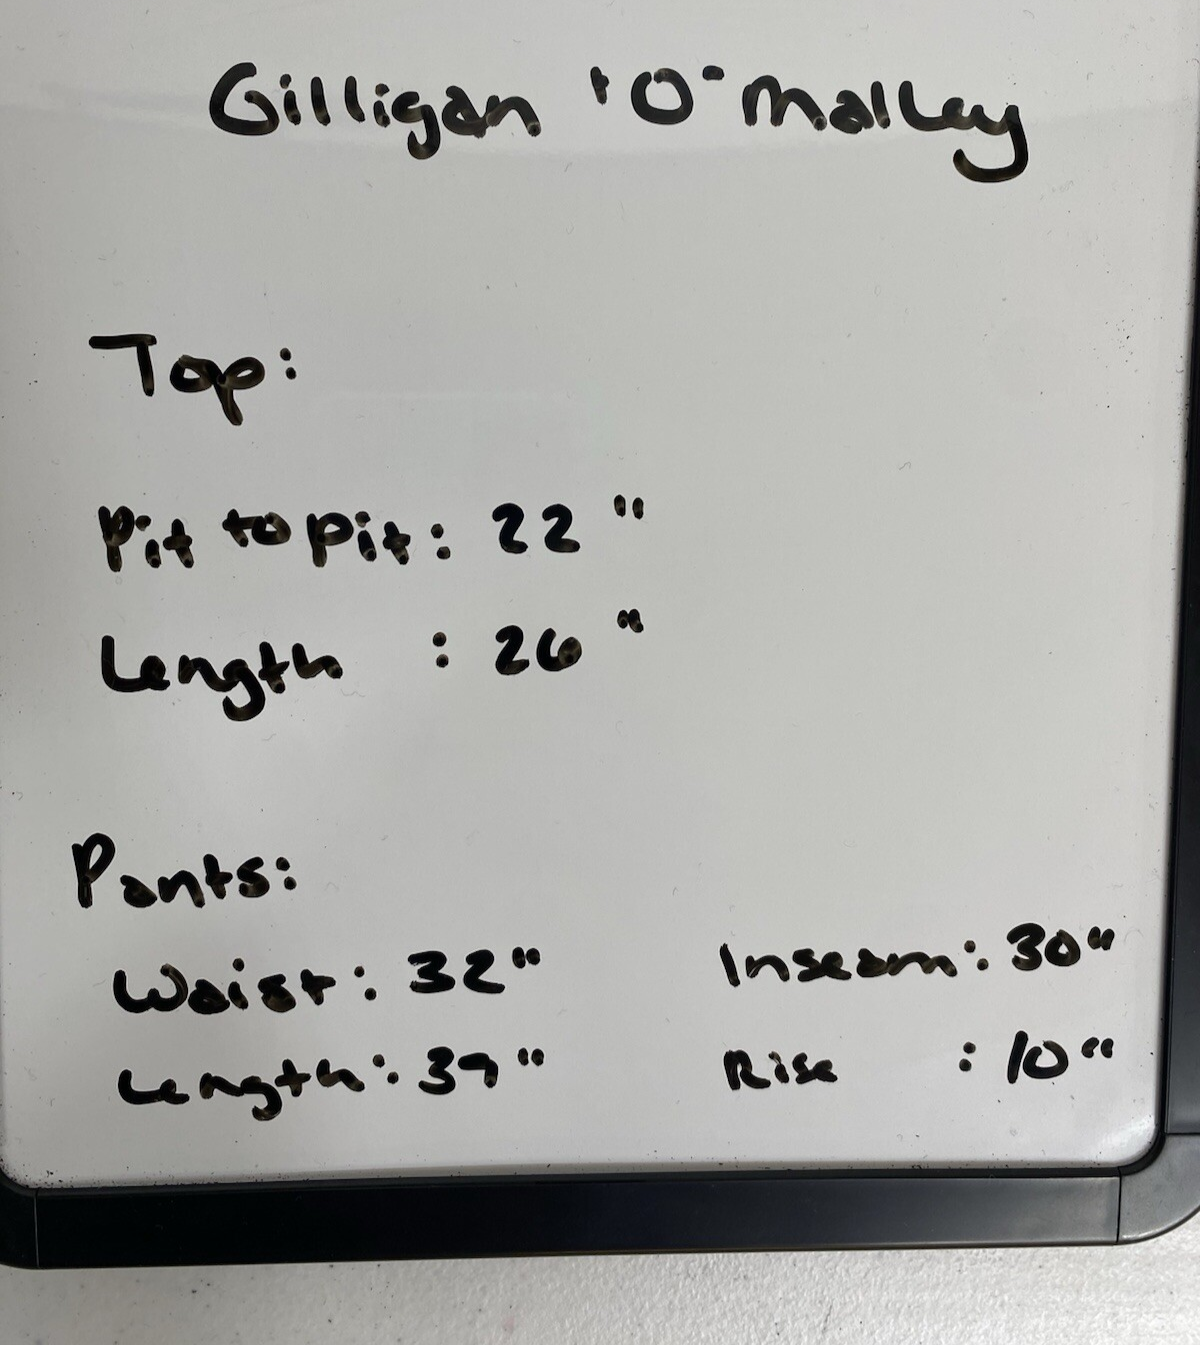 Gilligan 'O' Malley
Top:
Pit to pit: 22"
Length : 26"
Pants:
Waist: 32" Inseam: 30"
Length: 37" Rise : 10"